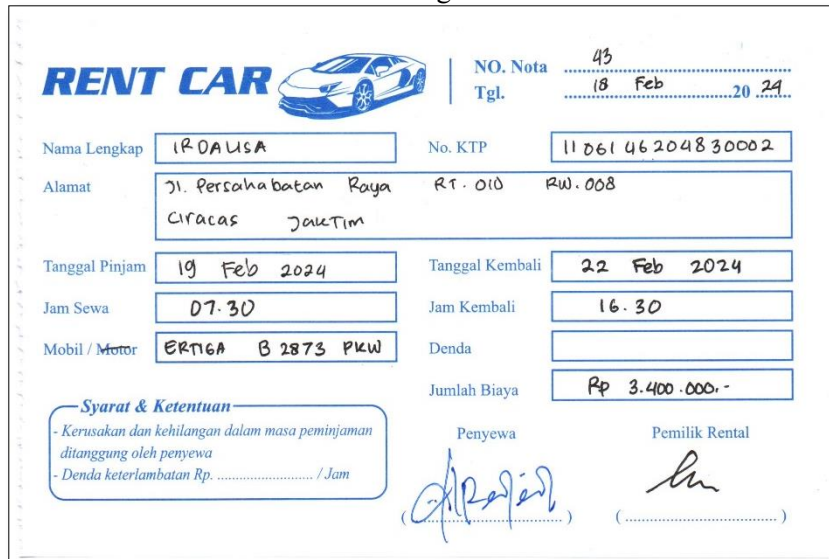 RENT CAR
NO. Nota 43
Tgl. 18 Feb 20 24
Nama Lengkap IRDALISA
No. KTP 1106146204830002
Alamat Jl. Persahabatan Raya RT. 010 RW. 008
Ciracas JakTim
Tanggal Pinjam 19 Feb 2024
Tanggal Kembali 22 Feb 2024
Jam Sewa 07.30
Jam Kembali 16.30
Mobil / Motor ERTIGA B 2873 PKW
Denda
Jumlah Biaya Rp 3.400.000,-
Syarat & Ketentuan
- Kerusakan dan kehilangan dalam masa peminjaman
ditanggung oleh penyewa
- Denda keterlambatan Rp. .......................... / Jam
Penyewa
Pemilik Rental